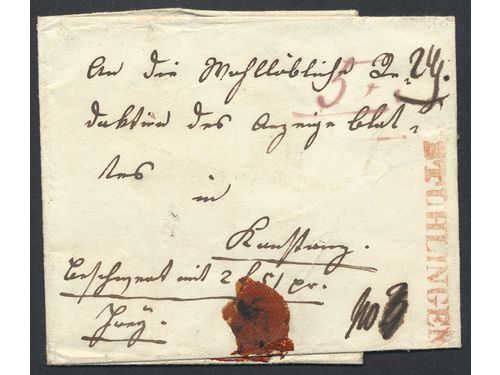 An die Wohllöbliche Re=
daktion des Anzeige blat=
tes
in
Konstanz.
Beschwert mit 2 f 51 xr.
frey.
No 8
STUHLINGEN